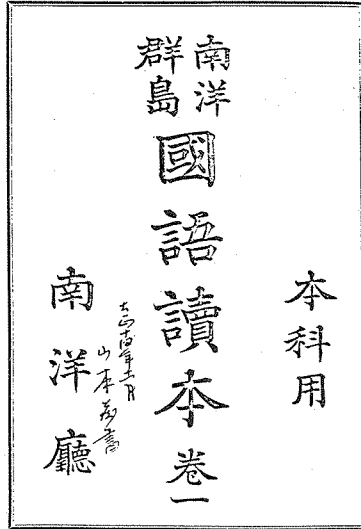 本科用
南洋群島
國語讀本 卷一
南洋廳